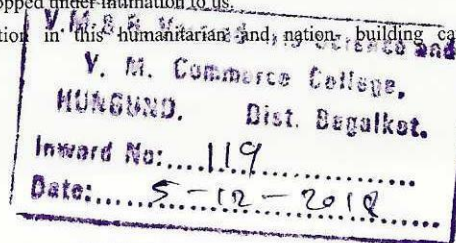 opped under intimation to us.
tion in this humanitarian and nation- building ca
Science and
V. M. Commerce College,
HUNGUND. Dist. Bagalkot.
Inward No:.....119................
Date:......5-12-2018..........